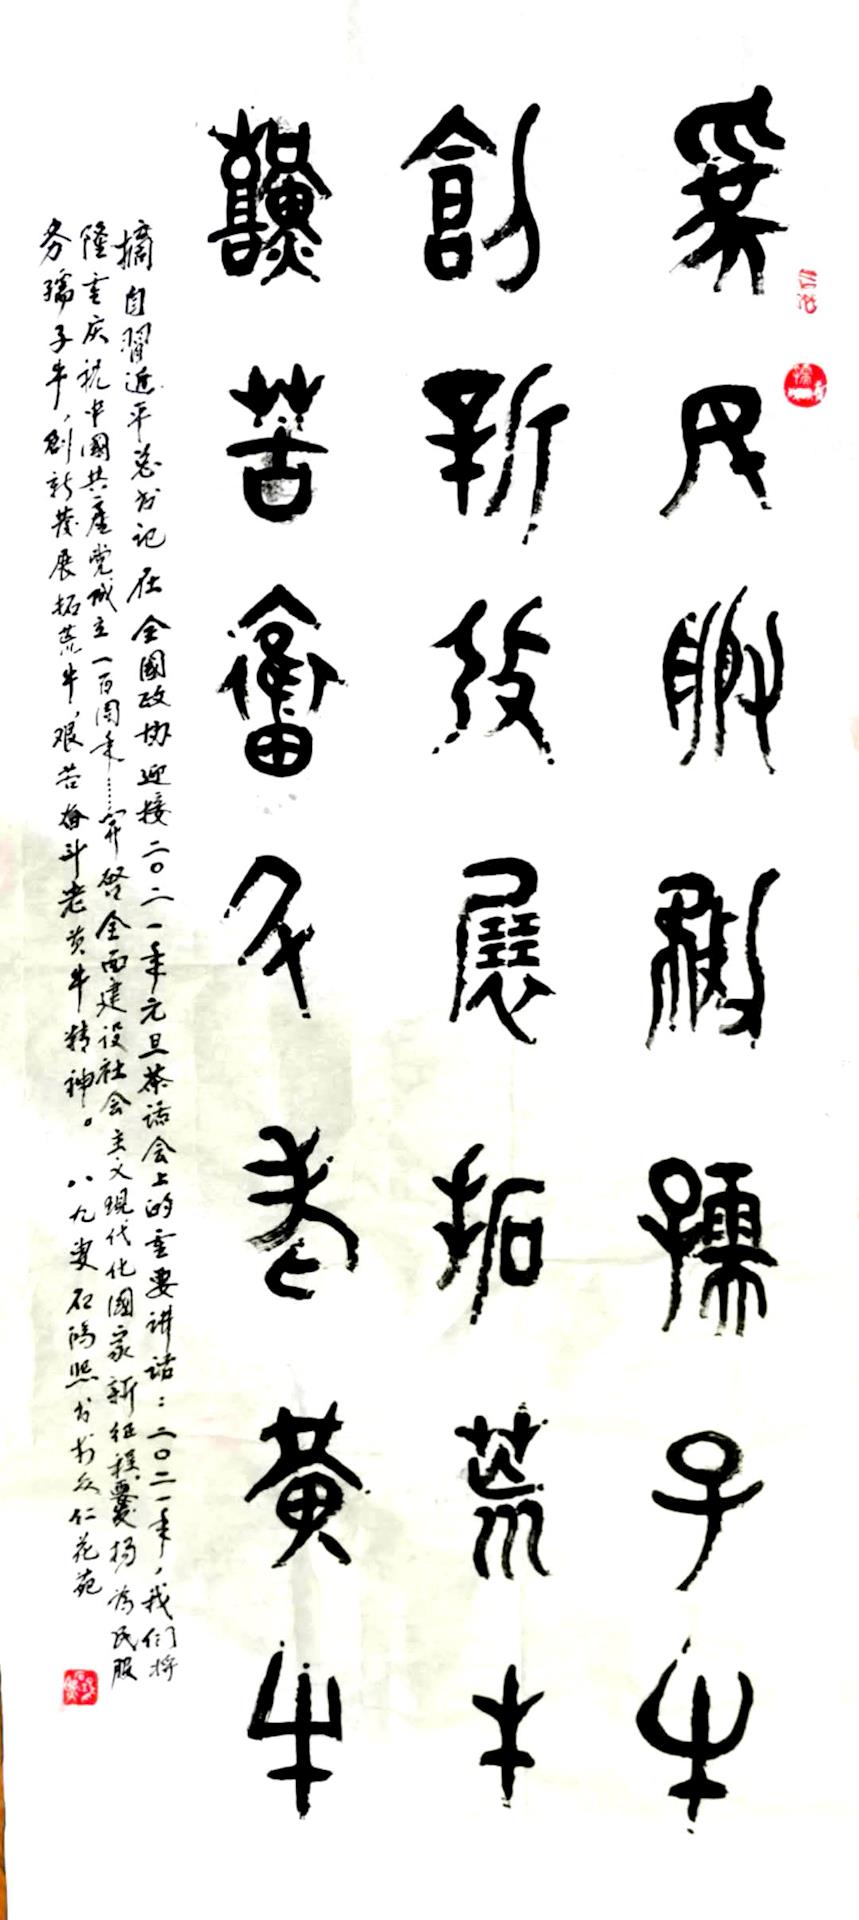 為民服務孺子牛
創新發展拓荒牛
艱苦奮鬥老黃牛
摘自習近平总书记在全國政协迎接二〇二一年元旦茶话会上的重要讲话：二〇二一年，我们将
隆重庆祝中國共產党成立一百周年……开启全面建设社会主义現代化國家新征程，要发扬为民服
务孺子牛，創新发展拓荒牛，艰苦奋斗老黄牛精神。 八九叟石鴻熙书於众仁花苑